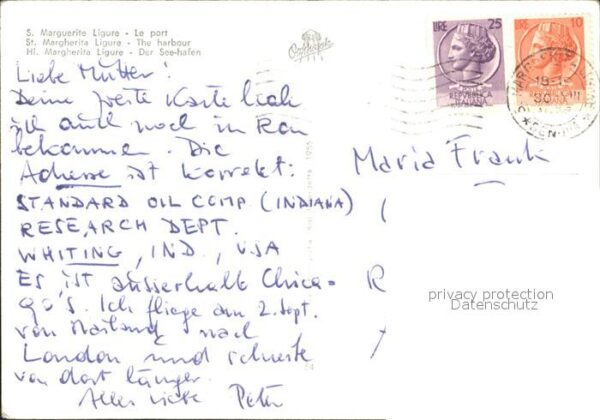 S. Marguerite Ligure - Le port
St. Margherita Ligure - The harbour
Hl. Margherita Ligure - Der See-hafen
LIRE 25
LIRE 10
Liebe Mutter!
Deine zweite Karte hab
ich auch noch in Rom
bekommen. Die
Adresse ist korrekt:
STANDARD OIL COMP (INDIANA)
RESEARCH DEPT.
WHITING, IND., USA
Es ist ausserhalb Chica-
go's. Ich fliege am 2. Sept.
von Mailand nach
London und schreibe
von dort länger.
Alles Liebe Peter
Maria Frank
R
privacy protection
Datenschutz